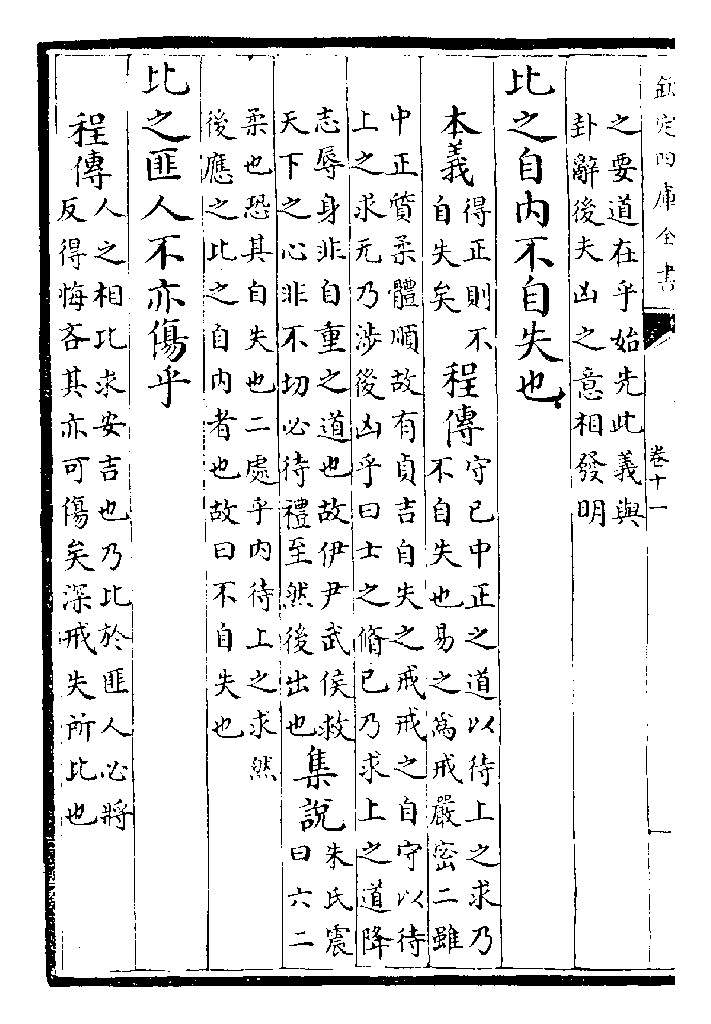 欽定四庫全書
卷十一
之要道在乎始先此義與
卦辭後夫凶之意相發明
比之自内不自失也
本義
得正則不
自失矣
程傳
守已中正之道以待上之求乃
不自失也易之為戒嚴密二雖
中正質柔體順故有貞吉自失之戒戒之自守以待
上之求无乃涉後凶乎曰士之脩已乃求上之道降
志辱身非自重之道也故伊尹武侯救
天下之心非不切必待禮至然後出也
集說
朱氏震
曰六二
柔也恐其自失也二處乎内待上之求然
後應之比之自内者也故曰不自失也
比之匪人不亦傷乎
程傳
人之相比求安吉也乃比於匪人必將
反得悔吝其亦可傷矣深戒失所比也